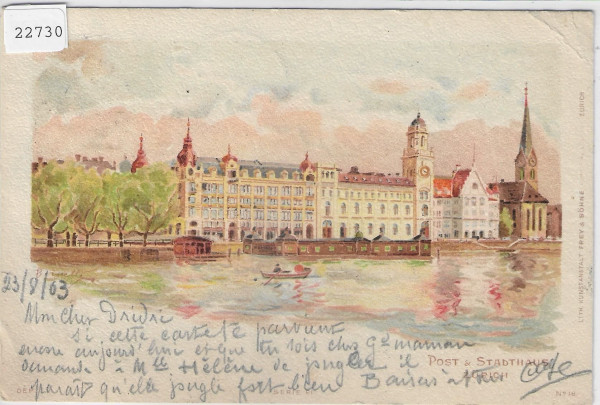 22730
ZÜRICH
LITH. KUNSTANSTALT FREY & SÖHNE
23/8/03
Mon cher Dridri
Si cette carte te parvient
encore aujourd'hui et que tu sois chez Gd maman
demande à Mlle Hélène de jongler il
paraît qu'elle jongle fort bien Baisers à tous
POST & STADTHAUS
ZÜRICH
SERIE
No